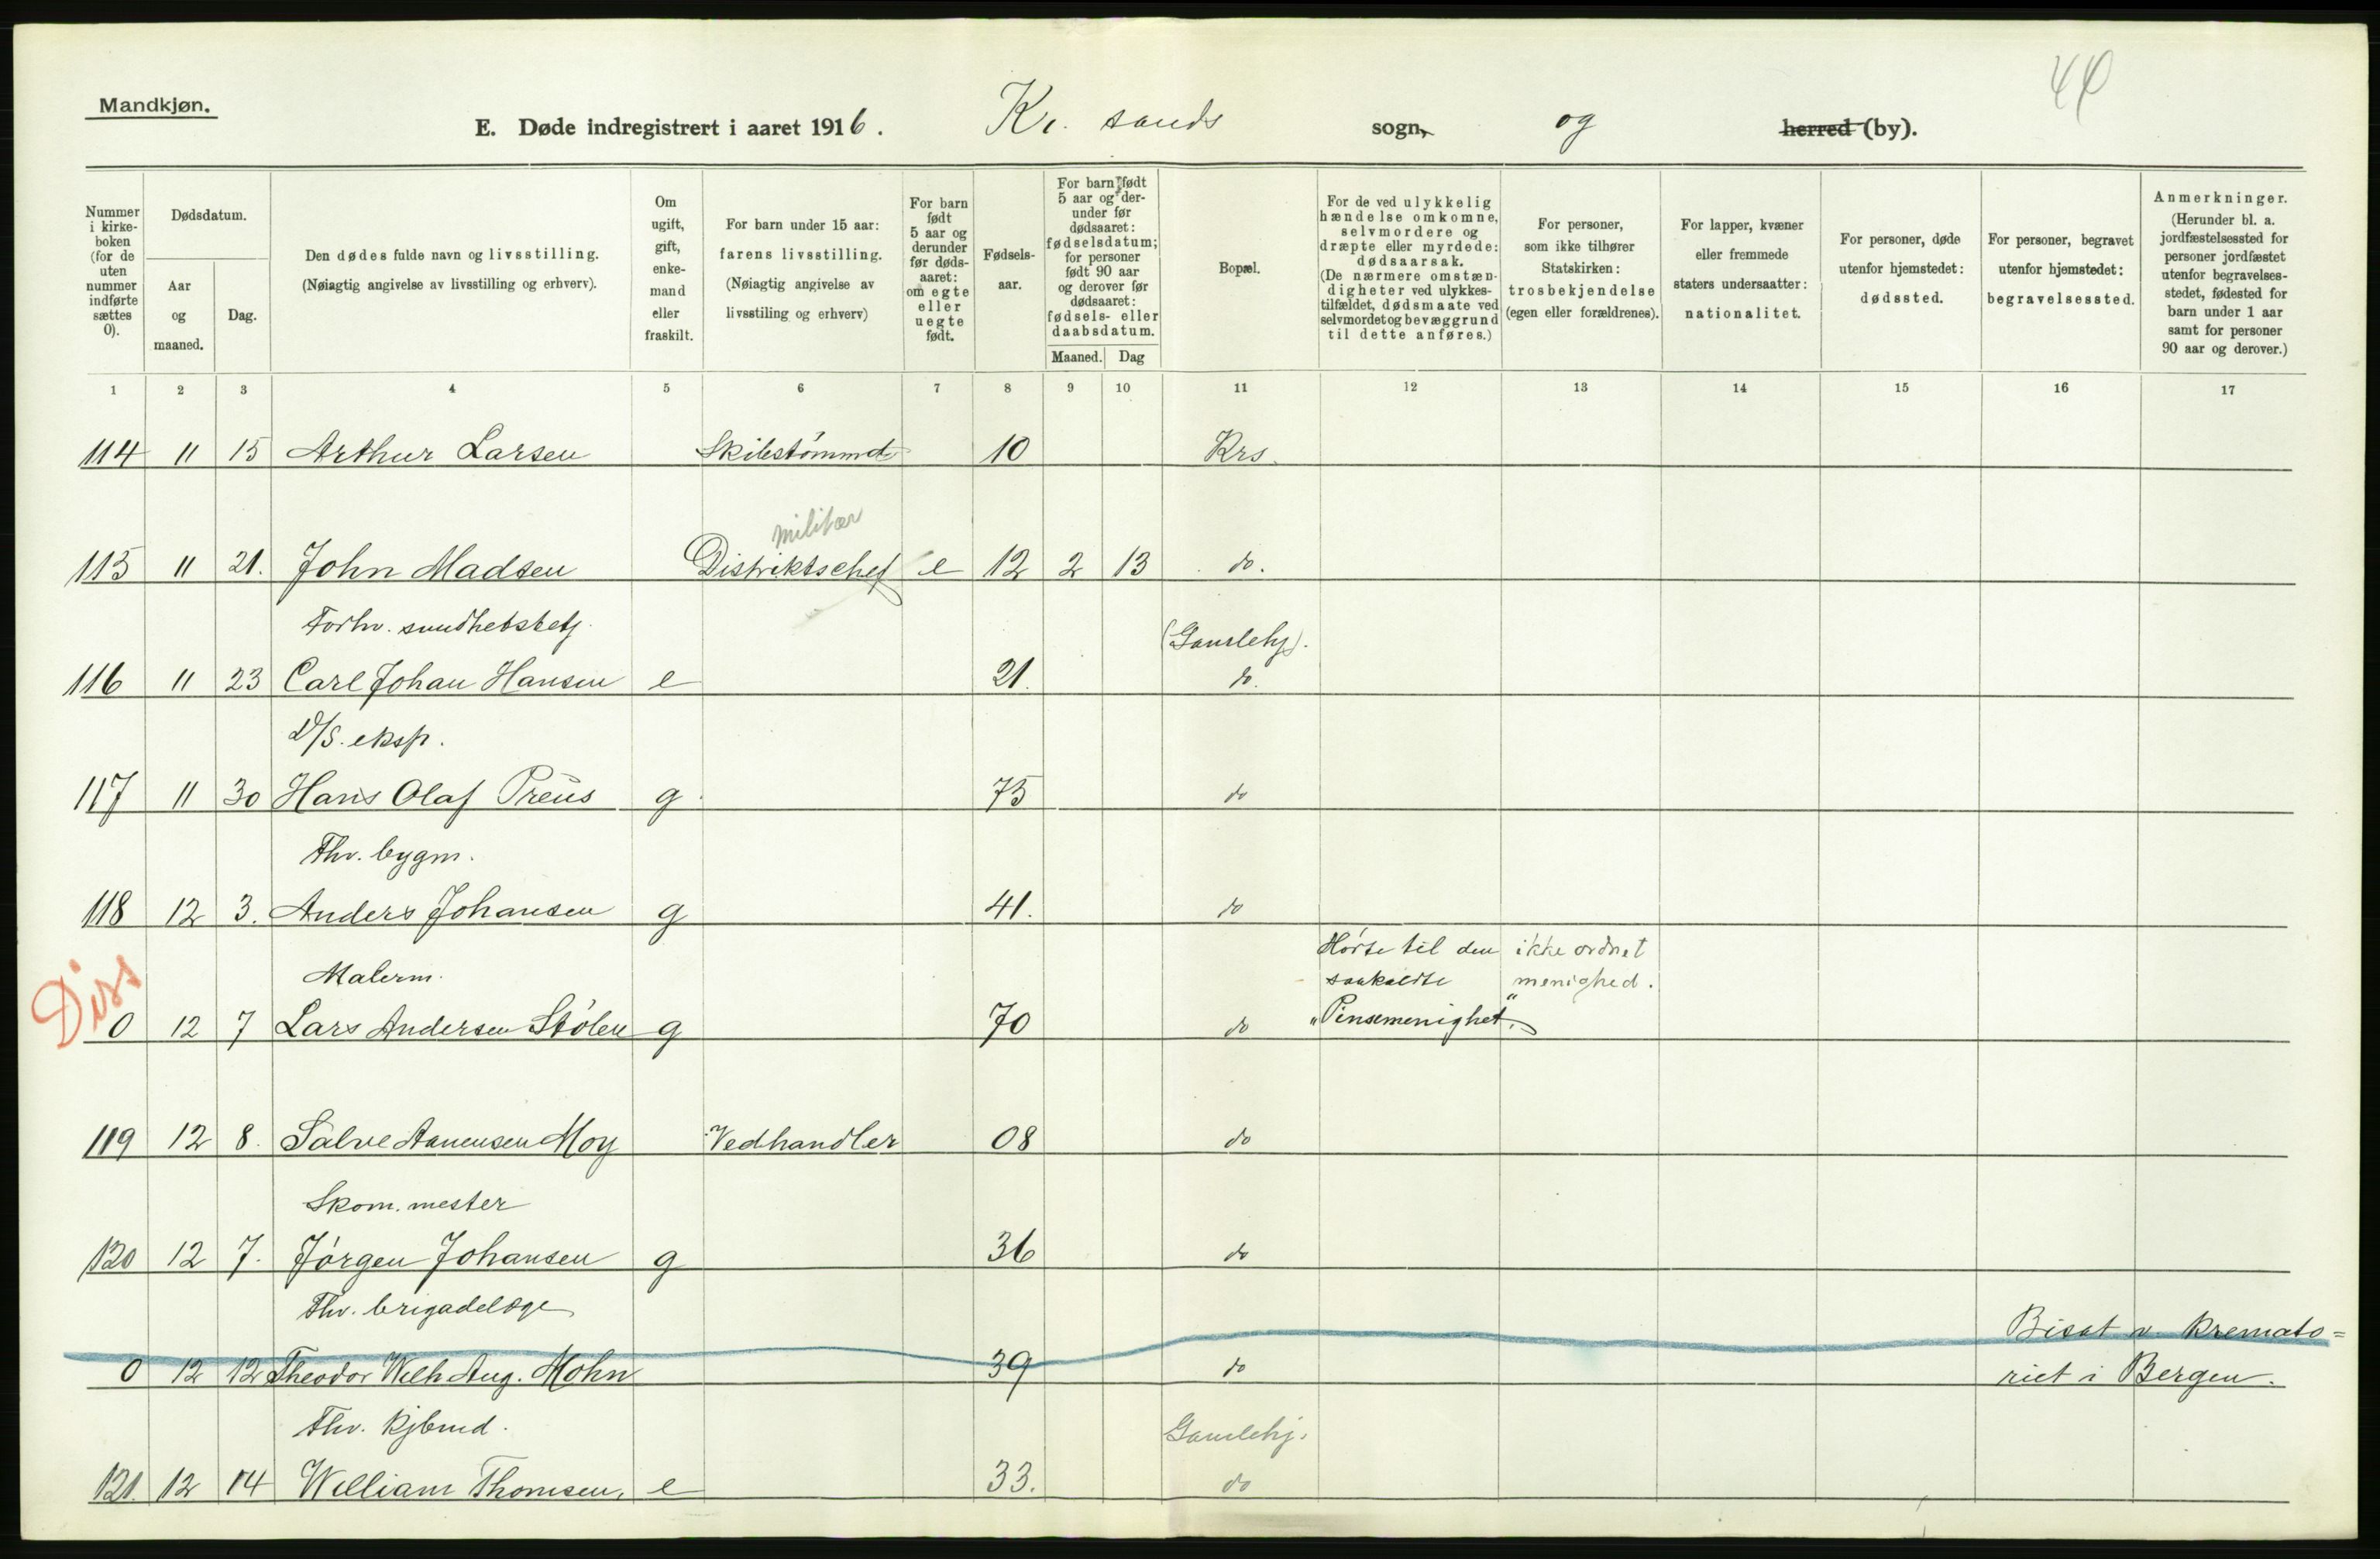 46
Mandkjøn.
E. Døde indregistrert i aaret 1916. Kr. sands sogn, og herred (by).
Nummer i kirkeboken (for de uten nummer indførte sættes 0).
Dødsdatum.
Aar og maaned.
Dag.
Den dødes fulde navn og livsstilling.
(Nøiagtig angivelse av livsstilling og erhverv).
Om ugift, gift, enkemand eller fraskilt.
For barn under 15 aar: farens livsstilling.
(Nøiagtig angivelse av livsstiling og erhverv)
For barn født 5 aar og derunder før dødsaaret: om egte eller uegte født.
Fødselsaar.
For barn født 5 aar og derunder før dødsaaret: fødselsdatum; for personer født 90 aar og derover før dødsaaret: fødsels- eller daabsdatum.
Maaned. Dag
Bopæl.
For de ved ulykkelig hændelse omkomne, selvmordere og dræpte eller myrdede: dødsaarsak.
(De nærmere omstændigheter ved ulykkestilfældet, dødsmaate ved selvmordet og bevæggrund til dette anføres.)
For personer, som ikke tilhører Statskirken: trosbekjendelse (egen eller forældrenes).
For lapper, kvæner eller fremmede staters undersaatter: nationalitet.
For personer, døde utenfor hjemstedet: dødssted.
For personer, begravet utenfor hjemstedet: begravelsessted.
Anmerkninger.
(Herunder bl. a. jordfæstelsessted for personer jordfæstet utenfor begravelsesstedet, fødested for barn under 1 aar samt for personer 90 aar og derover.)
1 2 3 4 5 6 7 8 9 10 11 12 13 14 15 16 17
114 11 15 Arthur Larsen Skibstømmd 10 Krs.
militær
115 11 21. John Madsen Distriktschef e 12 2 13 do.
Forhv. sundhetsbetj. (Gamlehj).
116 11 23 Carl Johan Hansen e 21. do.
D/S. eksp.
117 11 30 Hans Olaf Preus g 75 do
Fhv. bygm.
118 12 3. Anders Johansen g 41. do
Hørte til den ikke ordnet
Diss Malerm. saakaldte menighed.
0 12 7 Lars Andersen Stølen g 70 do "Pinsemenighet".
119 12 8. Salve Aanensen Moy Vedhandler 08 do
Skom. mester
120 12 7. Jørgen Johansen g 36 do
Fhv. brigadelæge Bisat v. kremato=
0 12 12 Theodor Wilh Aug. Mohn 39 do riet i Bergen.
Fhv. kjbmd. Gamlehj.
121. 12 14 William Thomsen, e 33. do